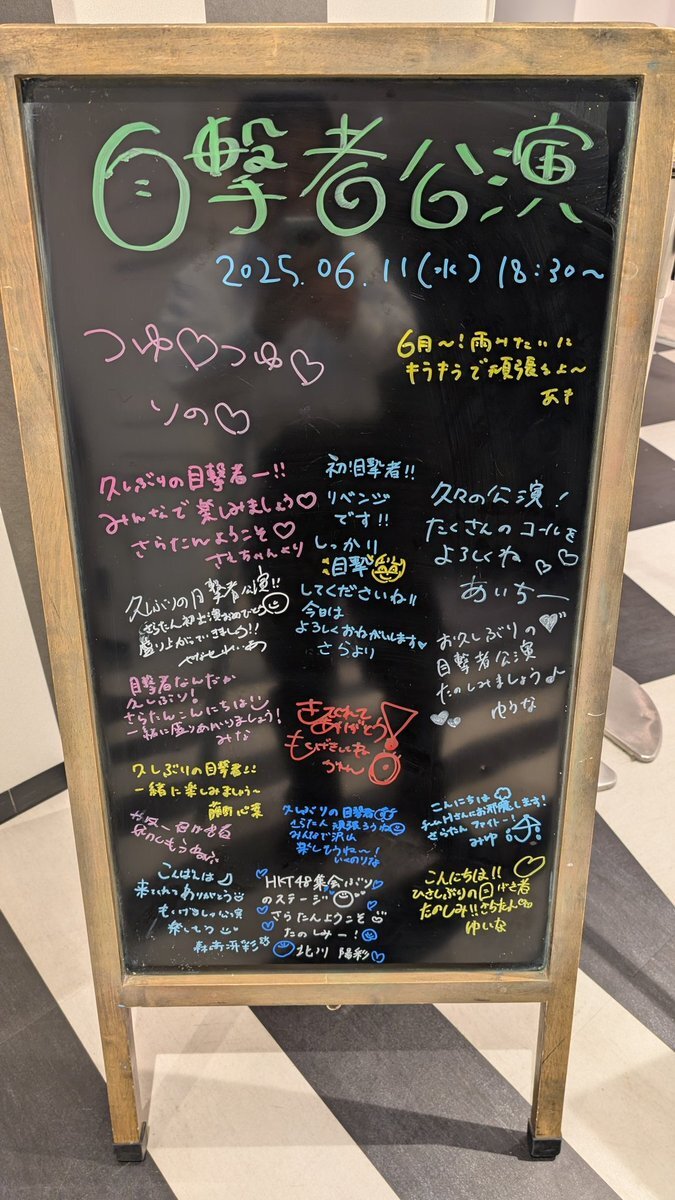 目撃者公演
2025.06.11(水) 18:30~
つゆ♡つゆ♡
りの♡
6月〜!雨みたいに
キラキラで頑張るよ〜
あき
久しぶりの目撃者ー!!
みんなで楽しみましょう♡
さらたんようこそ♡
さえちゃんより
初!目撃者!!
リベンジ
です!!
しっかり
目撃
してくださいね!!
今日は
よろしくおねがいします♡
さらより
久々の公演!
たくさんのコールを
よろしくね♡♡
あいちー
久しぶりの目撃者公演!!
さらたん初出演おめでとう
盛り上がっていきましょう!!
お久しぶりの
目撃者公演
たのしみましょう♪
ゆうな
目撃者なんだか
久しぶり!
さらたんこんにちは
一緒に盛りあがりましょう!
みな
きてくれて
ありがとう!
かれん
久しぶりの目撃者!!
一緒に楽しみましょう〜
久しぶりの目撃者
さらたん頑張ろうね
みんなで沢山
楽しもうね〜!
いくのりな
こんにちは
チームHさんにお邪魔します!
さらたんファイトー!
みゆ
こんばんは
来てくれてありがとう
公演
楽しもう
HKT48集会ぶり
のステージ
さらたんようこそ
たのしみー!
北川 陽彩
こんにちは!!
ひさしぶりの目げき者
たのしみ!!さらたん
ゆいな